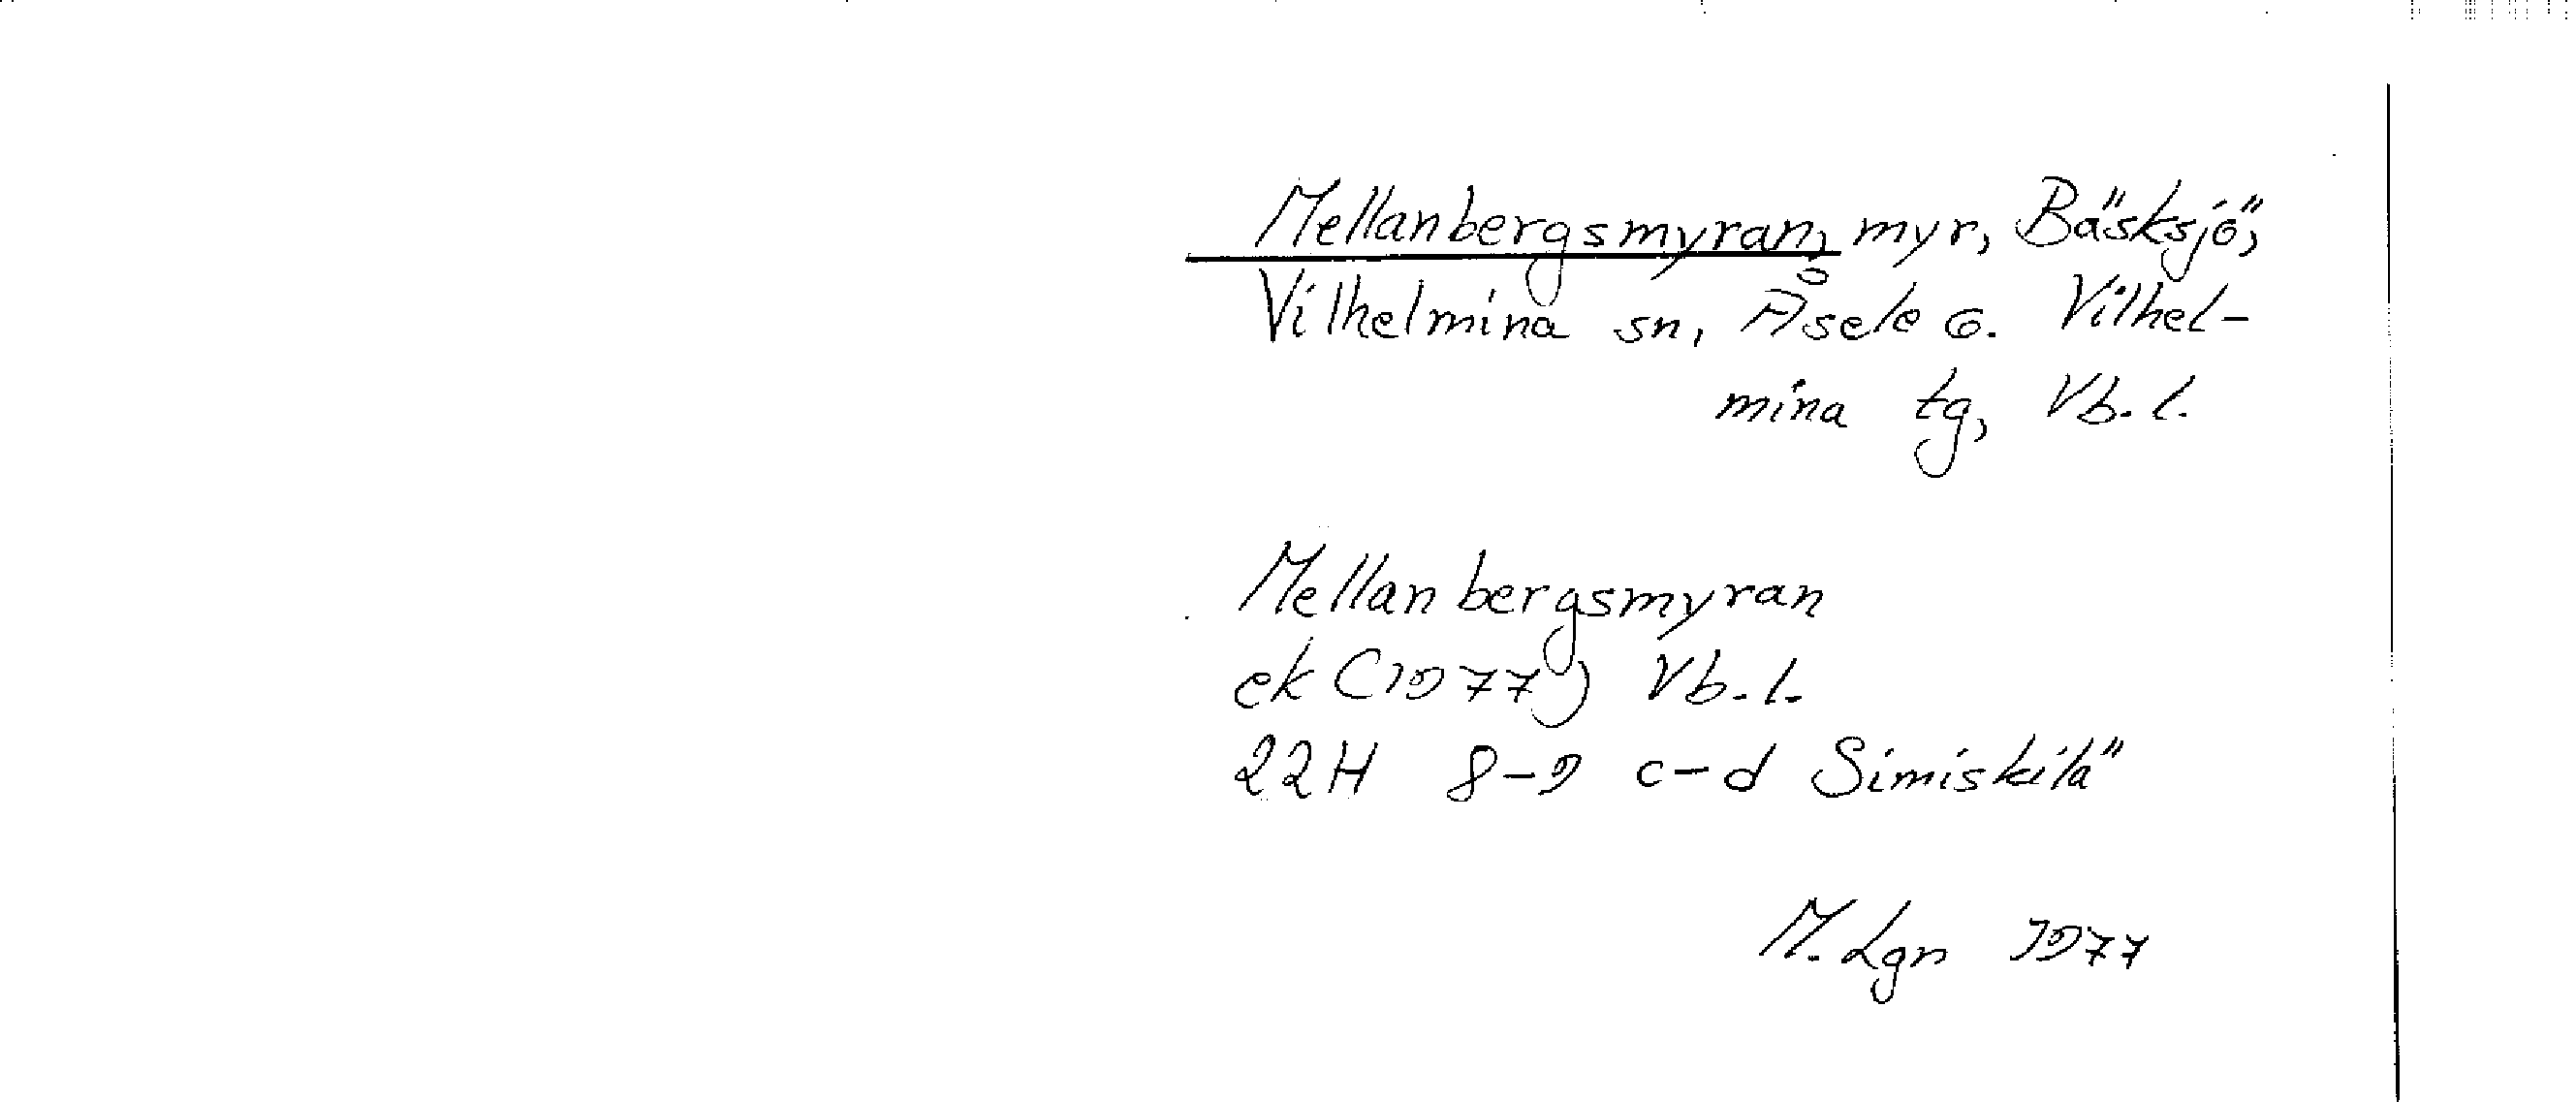 Mellanbergsmyran, myr, Bäsksjö,
Vilhelmina sn, Åsele G. Vilhel-
mina tg, Vb. l.
Mellanbergsmyran
ek (1977) Vb. l.
22H 8-9 c-d Simiskilä
M. Lgn 1977